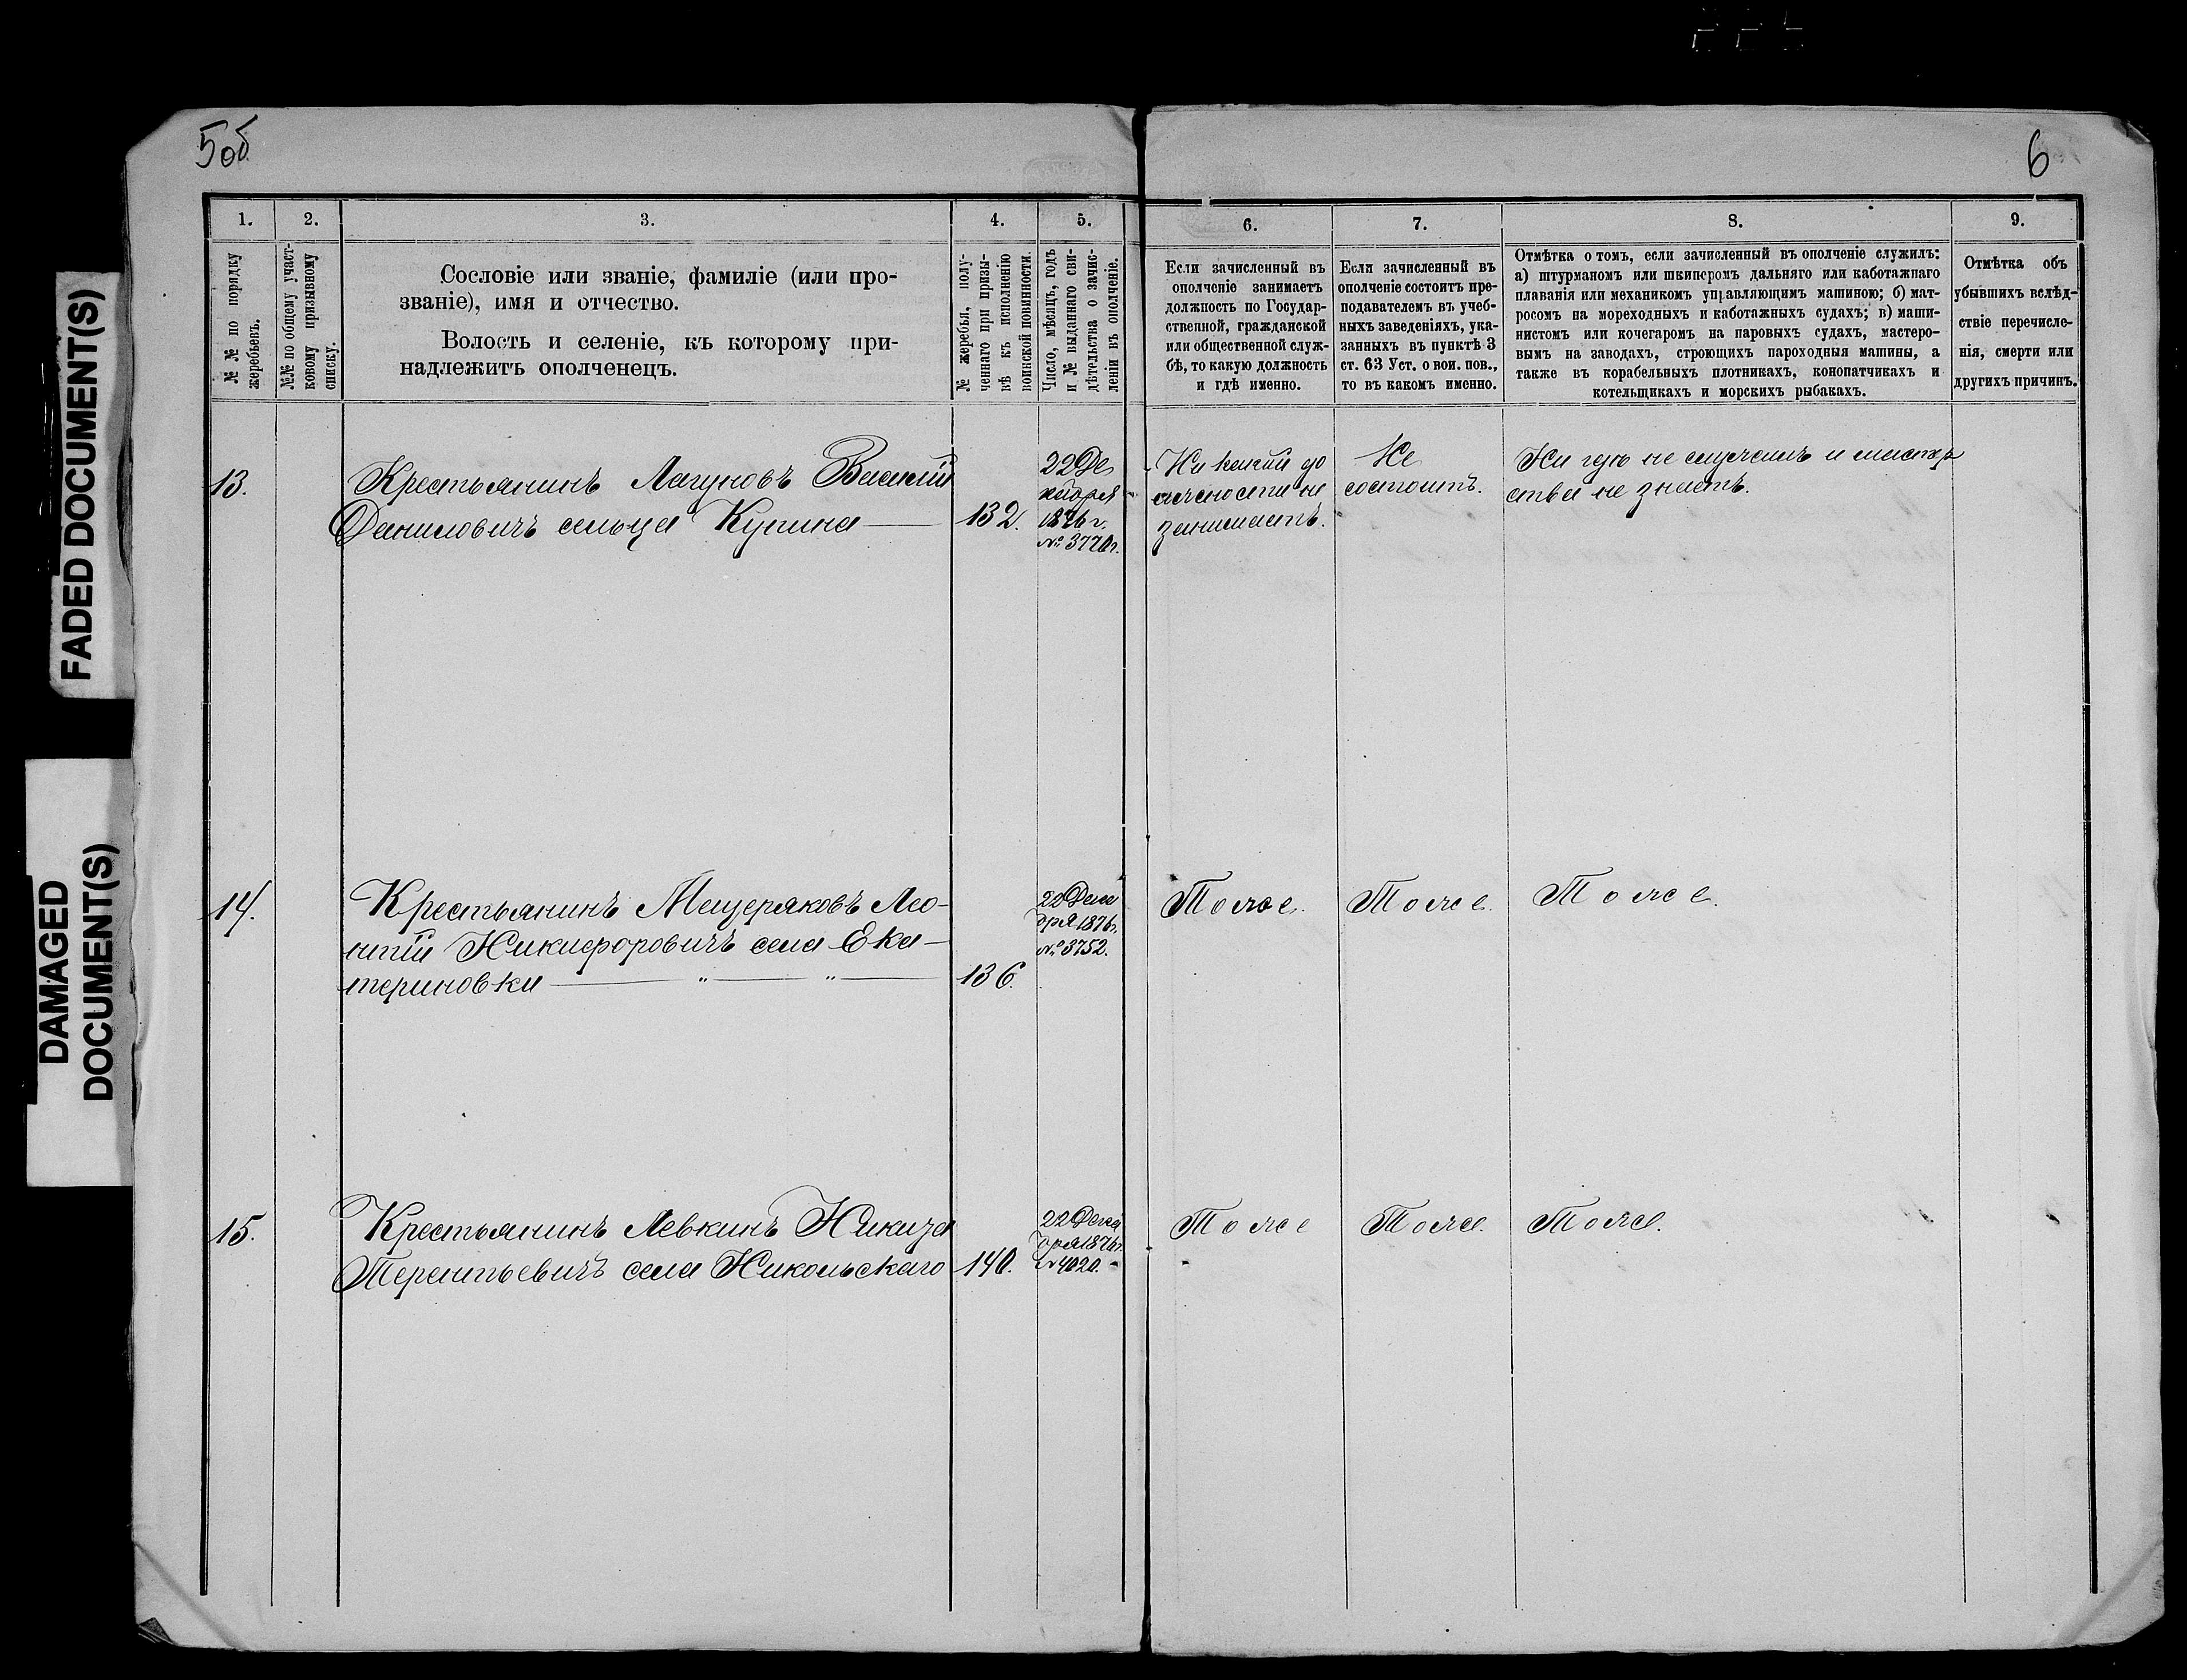 5об
6
FADED DOCUMENT(S)
DAMAGED
DOCUMENT(S)
1.
2.
3.
4.
5.
6.
7.
8.
9.
№ № по порядку
жеребьевъ.
№№ по общему участ-
ковому призывному
списку.
Сословіе или званіе, фамиліе (или про-
званіе), имя и отчество.
Волость и селеніе, къ которому при-
надлежитъ ополченецъ.
№ жеребья, полу-
ченнаго при призы-
вѣ къ исполненію
воинской повинности.
Число, мѣсяцъ, годъ
и № выданнаго сви-
дѣтельства о зачис-
леніи въ ополченіе.
Если зачисленный въ
ополченіе занимаетъ
должность по Государ-
ственной, гражданской
или общественной служ-
бѣ, то какую должность
и гдѣ именно.
Если зачисленный въ
ополченіе состоитъ пре-
подавателемъ въ учеб-
ныхъ заведеніяхъ, ука-
занныхъ въ пунктѣ 3
ст. 63 Уст. о вои. пов.,
то въ какомъ именно.
Отмѣтка о томъ, если зачисленный въ ополченіе служилъ:
а) штурманомъ или шкиперомъ дальняго или каботажнаго
плаванія или механикомъ управляющимъ машиною; б) мат-
росомъ на мореходныхъ и каботажныхъ судахъ; в) маши-
нистомъ или кочегаромъ на паровыхъ судахъ, мастеро-
вымъ на заводахъ, строющихъ пароходныя машины, а
также въ корабельныхъ плотникахъ, конопатчикахъ и
котельщикахъ и морскихъ рыбакахъ.
Отмѣтка объ
убывшихъ вслѣд-
ствіе перечисле-
нія, смерти или
другихъ причинъ.
13.
Крестьянинъ Лагуновъ Василій
Даниловичъ сельца Купина
132.
22 Де
кабря
1876 г.
№ 3770
Ни какий до
лжности не
занимаетъ.
Не
состоитъ.
Ни гдѣ не служилъ и мастер
ства не знаетъ.
14.
Крестьянинъ Мещеряковъ Лео-
нтій Никифоровичъ села Ека-
териновки — " — " —
136.
22 Дека
бря 1876 г.
№ 3752.
Тоже.
Тоже.
Тоже.
15.
Крестьянинъ Левкинъ Никита
Терентьевичъ села Никольскаго
140.
22 Дека
бря 1876 г.
№ 4020.
Тоже
Тоже.
Тоже.